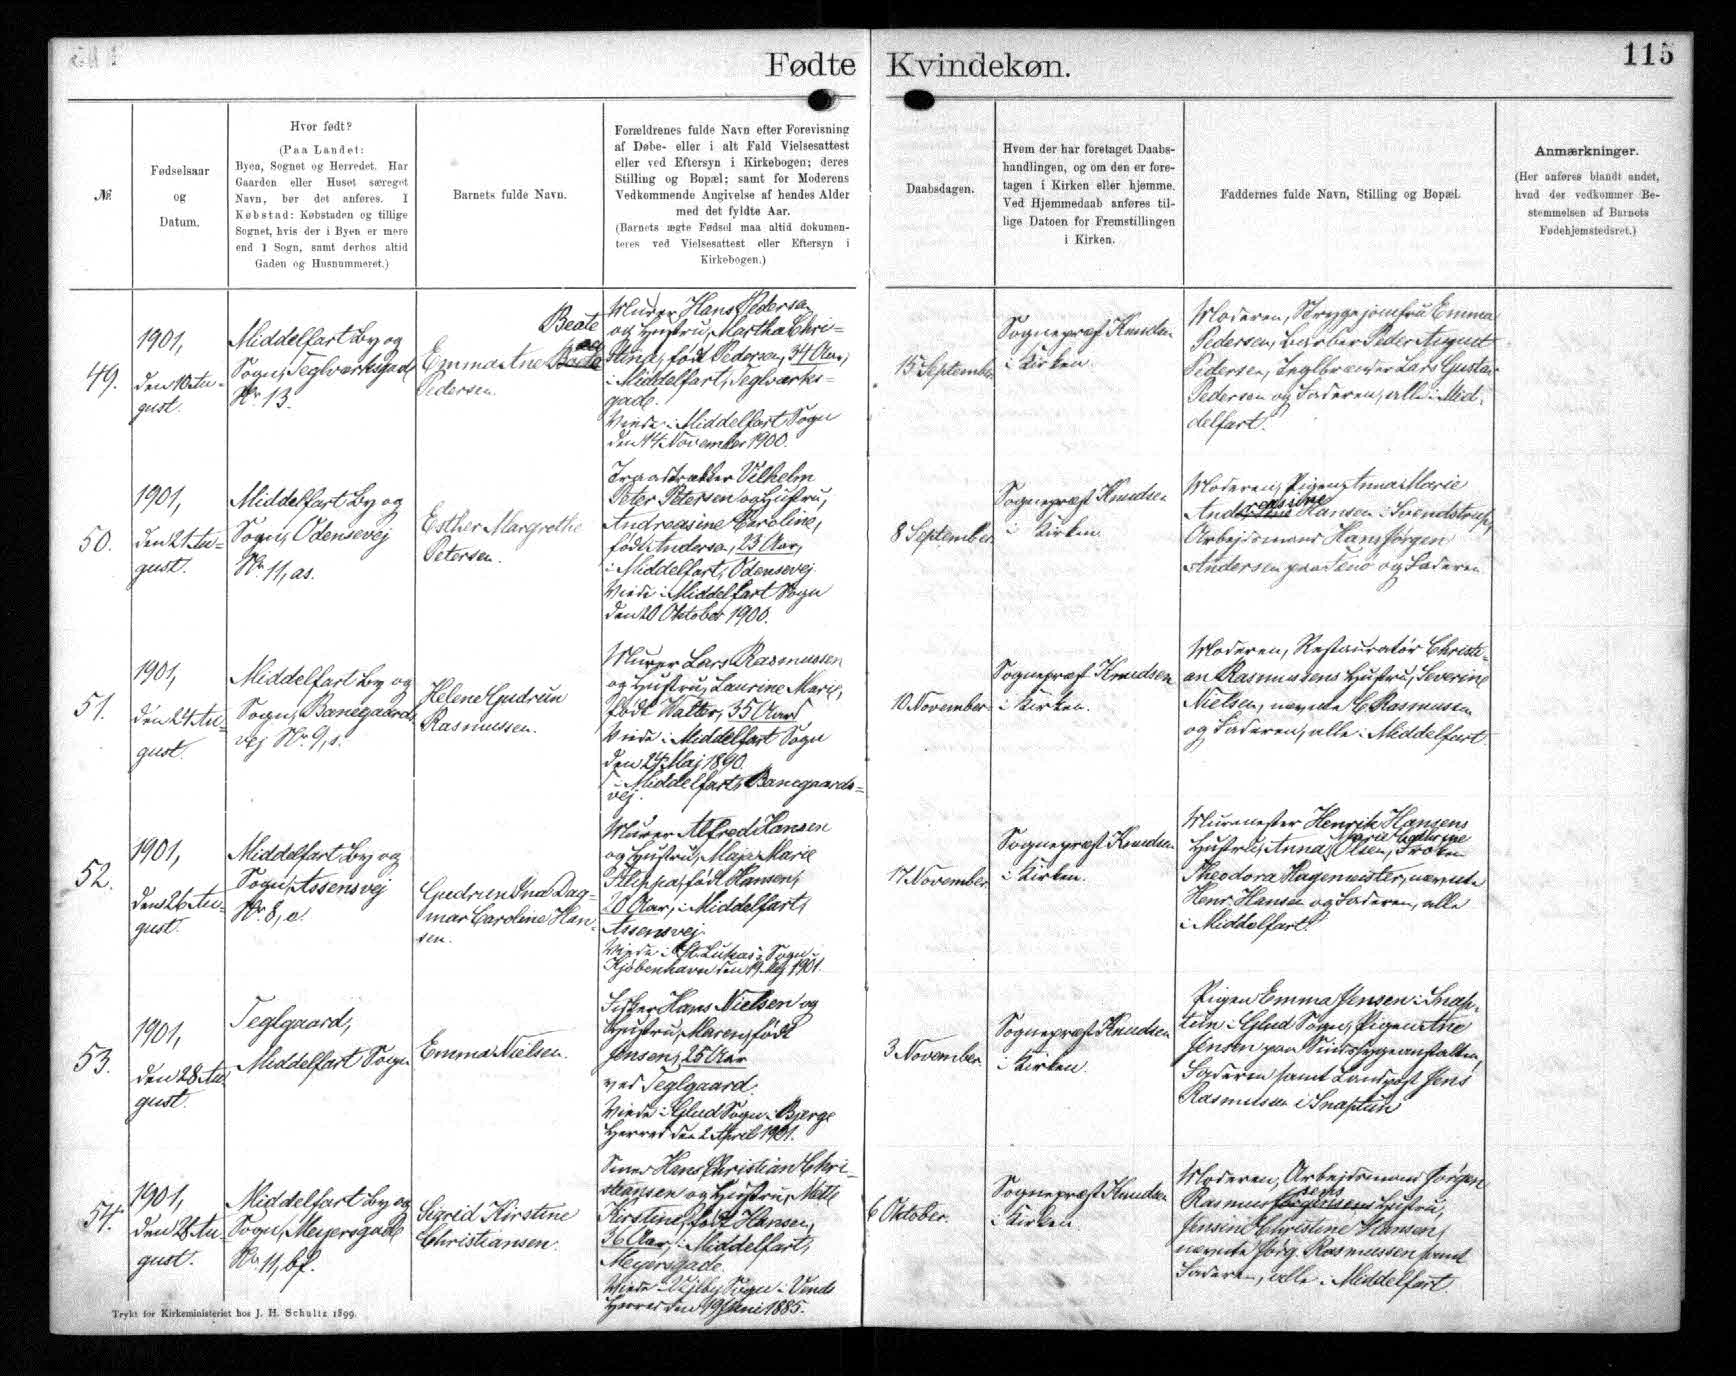 Fødte Kvindekøn.
115
№.
Fødselsaar
og
Datum.
Hvor født?
(Paa Landet:
Byen, Sognet og Herredet. Har
Gaarden eller Huset særeget
Navn, bør det anføres. I
Købstad: Købstaden og tillige
Sognet, hvis der i Byen er mere
end 1 Sogn, samt derhos altid
Gaden og Husnummeret.)
Barnets fulde Navn.
Forældrenes fulde Navn efter Forevisning
af Døbe- eller i alt Fald Vielsesattest
eller ved Eftersyn i Kirkebogen; deres
Stilling og Bopæl; samt for Moderens
Vedkommende Angivelse af hendes Alder
med det fyldte Aar.
(Barnets ægte Fødsel maa altid dokumen-
teres ved Vielsesattest eller Eftersyn i
Kirkebogen.)
Daabsdagen.
Hvem der har foretaget Daabs-
handlingen, og om den er fore-
tagen i Kirken eller hjemme.
Ved Hjemmedaab anføres til-
lige Datoen for Fremstillingen
i Kirken.
Faddernes fulde Navn, Stilling og Bopæl.
Anmærkninger.
(Her anføres blandt andet,
hvad der vedkommer Be-
stemmelsen af Barnets
Fødehjemstedsret.)
49.
1901,
den 10 Au-
gust.
Middelfart By og
Sogn, Teglværksgade
Nr. 13.
Beate
Emma Ane
Pedersen.
Murer Hans Pedersen
og Hustru, Martha Chri-
stina, født Pedersen, 34 Aar,
i Middelfart, Teglværks-
gade.
Viede i Middelfart Sogn
den 14 November 1900.
15 September
Sognepræst Knudsen
i Kirken.
Moderen, Strygejomfru Emma
Pedersen, Barber Peder August
Pedersen, Teglbrænder Lars Gustav
Pedersen og Faderen, alle i Mid-
delfart.
50.
1901,
den 21 Au-
gust.
Middelfart By og
Sogn, Odensevej
Nr. 11, as.
Esther Margrethe
Petersen.
Traadtrækker Vilhelm
Peter Petersen og Hustru,
Andreasine Caroline,
født Andersen, 23 Aar,
i Middelfart, Odensevej
Viede i Middelfart Sogn
den 20 Oktober 1900.
8 September
Sognepræst Knudsen
i Kirken.
Moderen, Pigen Anna Marie
Andreasine Hansen i Svendstrup,
Arbejdsmand Hans Jørgen
Andersen paa Fænø og Faderen
51.
1901,
den 24 Au-
gust.
Middelfart By og
Sogn, Banegaards-
vej Nr. 9, s.
Helene Gudrun
Rasmussen.
Murer Lars Rasmussen
og Hustru, Laurine Marie,
født Walter, 35 Aar
Viede i Middelfart Sogn
den 24 Maj 1890.
i Middelfart, Banegaards-
vej.
10 November
Sognepræst Knudsen
i Kirken.
Moderen, Restauratør Christi-
an Rasmussens Hustru, Severine
Nielsen, nævnte C. Rasmussen
og Faderen, alle i Middelfart
52.
1901,
den 26 Au-
gust.
Middelfart By og
Sogn, Assensvej
Nr. 8, e.
Gudrun Ina Dag-
mar Caroline Han-
sen.
Murer Alfred Hansen
og Hustru, Maja Marie
Filippa, født Hansen,
20 Aar, i Middelfart,
Assensvej.
Viede i St. Lukas Sogn i
Kjøbenhavn den 19 Maj 1901.
17 November
Sognepræst Knudsen
i Kirken.
Murmester Henrik Hansens
Marie Cathrine
Hustru, Anna Olsen, Frøken
Theodora Hagemeister, nævnte
Henr. Hansen og Faderen, alle
i Middelfart.
53.
1901,
den 28 Au-
gust.
Teglgaard,
Middelfart Sogn
Emma Nielsen.
Fisker Hans Nielsen og
Hustru, Maren, født
Jensen, 25 Aar
ved Teglgaard.
Viede i Glud Sogn i Bjerge
Herred den 2 April 1901.
3 November.
Sognepræst Knudsen
i Kirken.
Pigen Emma Jensen i Snap-
tun i Glud Sogn, Pigen Ane
Jensen paa Sindssygeanstalten,
Faderen samt Landpost Jens
Rasmussen i Snaptun
54.
1901,
den 28 Au-
gust.
Middelfart By og
Sogn, Meyersgade
Nr. 11, bf.
Sigrid Kirstine
Christiansen.
Smed Hans Christian Chri-
stiansen og Hustru, Mette
Kirstine, født Hansen,
36 Aar, i Middelfart,
Meyersgade.
Viede i Vejlby Sogn i Vends
Herred den 19 Juni 1885.
6 Oktober.
Sognepræst Knudsen
i Kirken.
Moderen, Arbejdsmand Jørgen
Rasmussens Hustru,
Jensine Christine Hansen,
nævnte Jørg. Rasmussen samt
Faderen, alle i Middelfart.
Trykt for Kirkeministeriet hos J. H. Schultz 1899.